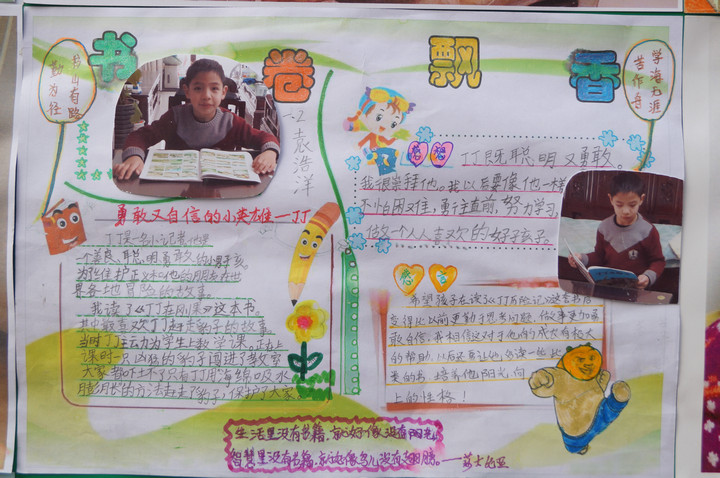 书卷飘香
书山有路
勤为径
学海无涯
苦作舟
一.2 袁浩洋
勇敢又自信的小英雄—丁丁
丁丁是一名小记者,他是
一个善良、聪明勇敢的小男孩。
为了维护正义和他的朋友在世
界各地冒险的故事。
我读了《丁丁在刚果》这本书。
其中最喜欢丁丁赶走豹子的故事。
当时丁丁去为小学生上数学课,正在上
课时一只凶狠的豹子闯进了教室
大家都吓坏了只有丁丁用海绵吸水
膨胀的方法赶走了豹子,保护了大家
感想
丁丁既聪明又勇敢。
我很崇拜他。我以后要像他一样
不怕困难,勇往直前,努力学习,
做个人人喜欢的好孩子。
寄言
希望孩子在读了《丁丁历险记》这套书后
变得比以前更勤于思考问题,做事更加勇
敢自信,我相信这对于他的成长有极大
的帮助,以后还要让他多读一些
类的书,培养他阳光、向
上的性格!
生活里没有书籍,就好像没有阳光;
智慧里没有书籍,就好像鸟儿没有翅膀。——莎士比亚